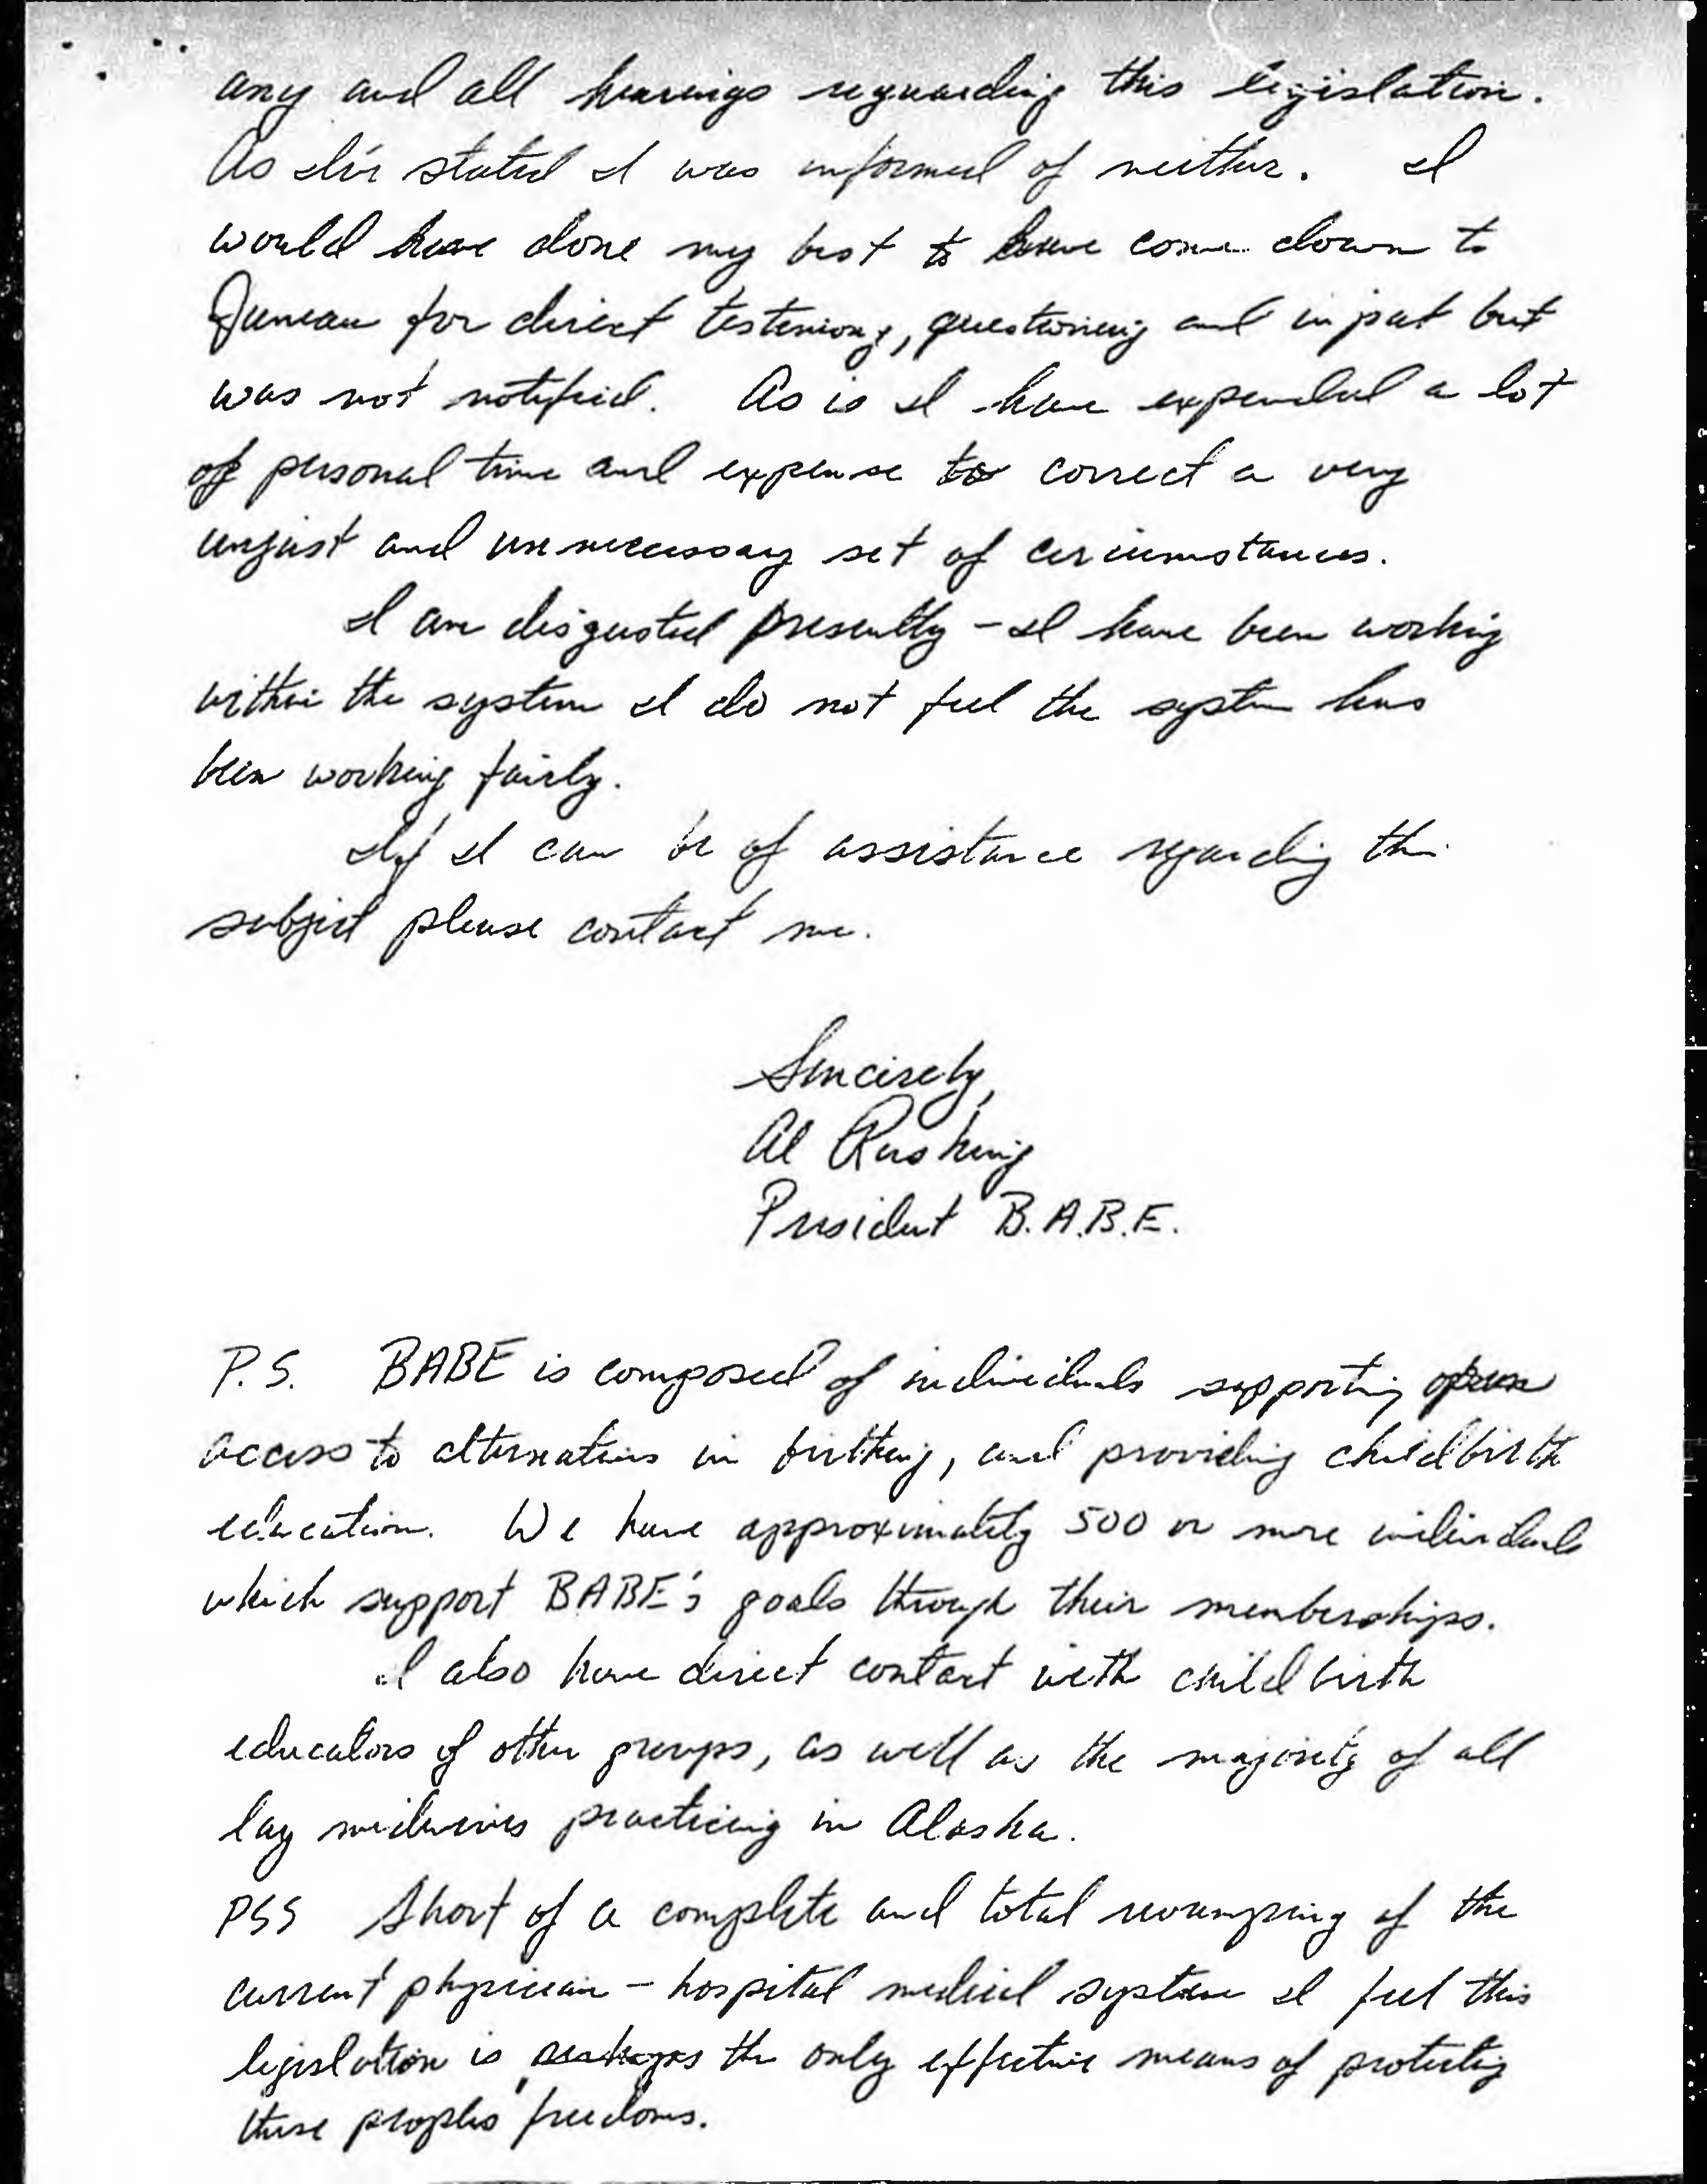 any and all hearings reguarding this legislation.
As I've stated I was informed of neither. I
would have done my best to have come down to
Juneau for direct testimony, questioning and input but
was not notified. As is I have expended a lot
of personal time and expense to correct a very
unjust and unnecessary set of circumstances.
I am disgusted presently - I have been working
within the system I do not feel the system has
been working fairly.
If I can be of assistance regarding this
subject please contact me.
Sincerely,
Al Rushing
President B.A.B.E.
P.S. BABE is composed of individuals supporting open
access to alternatives in birthing, and providing childbirth
education. We have approximately 500 or more individuals
which support BABE's goals through their memberships.
I also have direct contact with childbirth
educators of other groups, as well as the majority of all
lay midwives practicing in Alaska.
PSS Short of a complete and total revamping of the
current physician - hospital medical system I feel this
legislation is perhaps the only effective means of protecting
these peoples' freedoms.